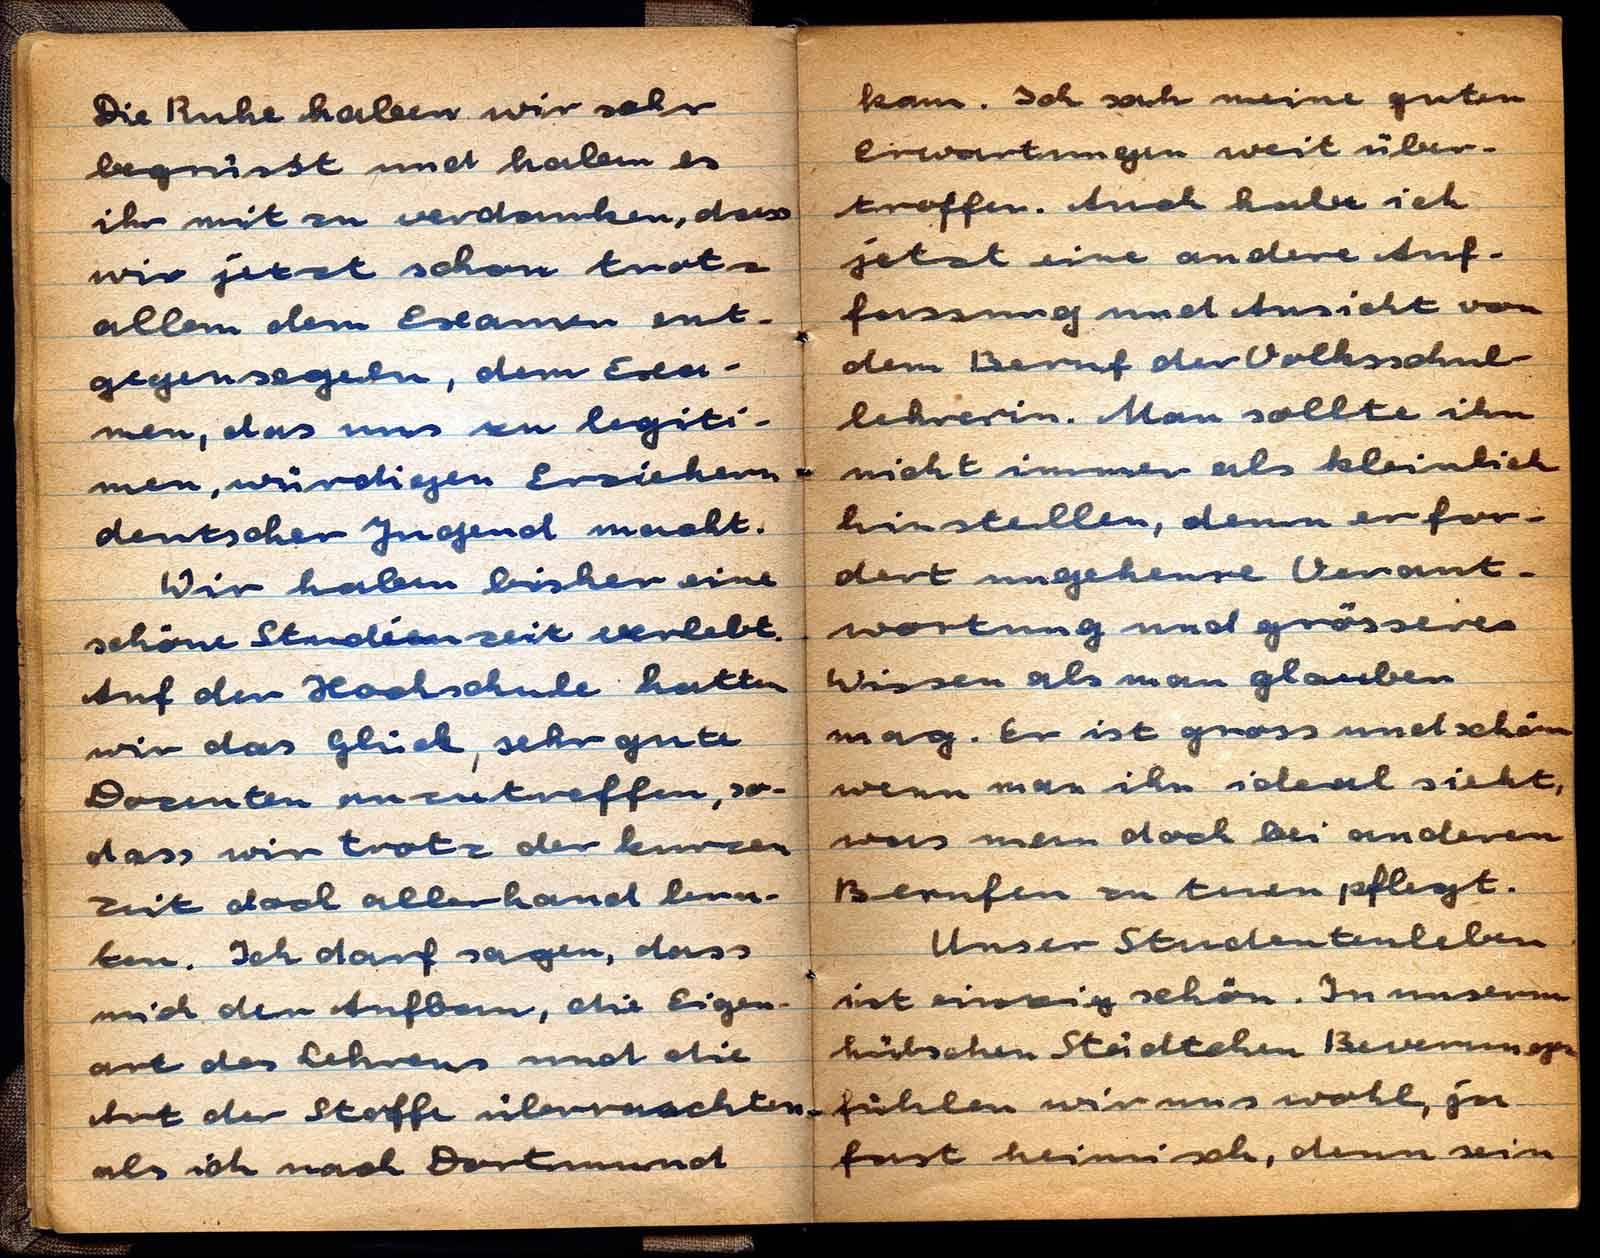 Die Ruhe haben wir sehr
begrüsst und haben es
ihr mit zu verdanken, dass
wir jetzt schon trotz
allem dem Examen ent-
gegensegeln, dem Exa-
men, das uns zu legiti-
men, würdigen Erziehern
deutscher Jugend macht.
Wir haben bisher eine
schöne Studienzeit verlebt.
Auf der Hochschule hatten
wir das Glück, sehr gute
Dozenten anzutreffen, so-
dass wir trotz der kurzen
Zeit doch allerhand lern-
ten. Ich darf sagen, dass
mich der Aufbau, die Eigen-
art des Lehrens und die
Art der Stoffe überraschten,
als ich nach Dortmund
kam. Ich sah meine guten
Erwartungen weit über-
troffen. Auch habe ich
jetzt eine andere Auf-
fassung und Ansicht von
dem Beruf der Volksschul-
lehrerin. Man sollte ihn
nicht immer als kleinlich
hinstellen, denn er for-
dert ungeheure Verant-
wortung und grösseres
Wissen als man glauben
mag. Er ist gross und schön
wenn man ihn ideal sieht,
was man doch bei anderen
Berufen zu tuen pflegt.
Unser Studentenleben
ist einzig schön. In unserm
hübschen Städtchen Beverungen
fühlen wir uns wohl, ja
fast heimisch, denn sein